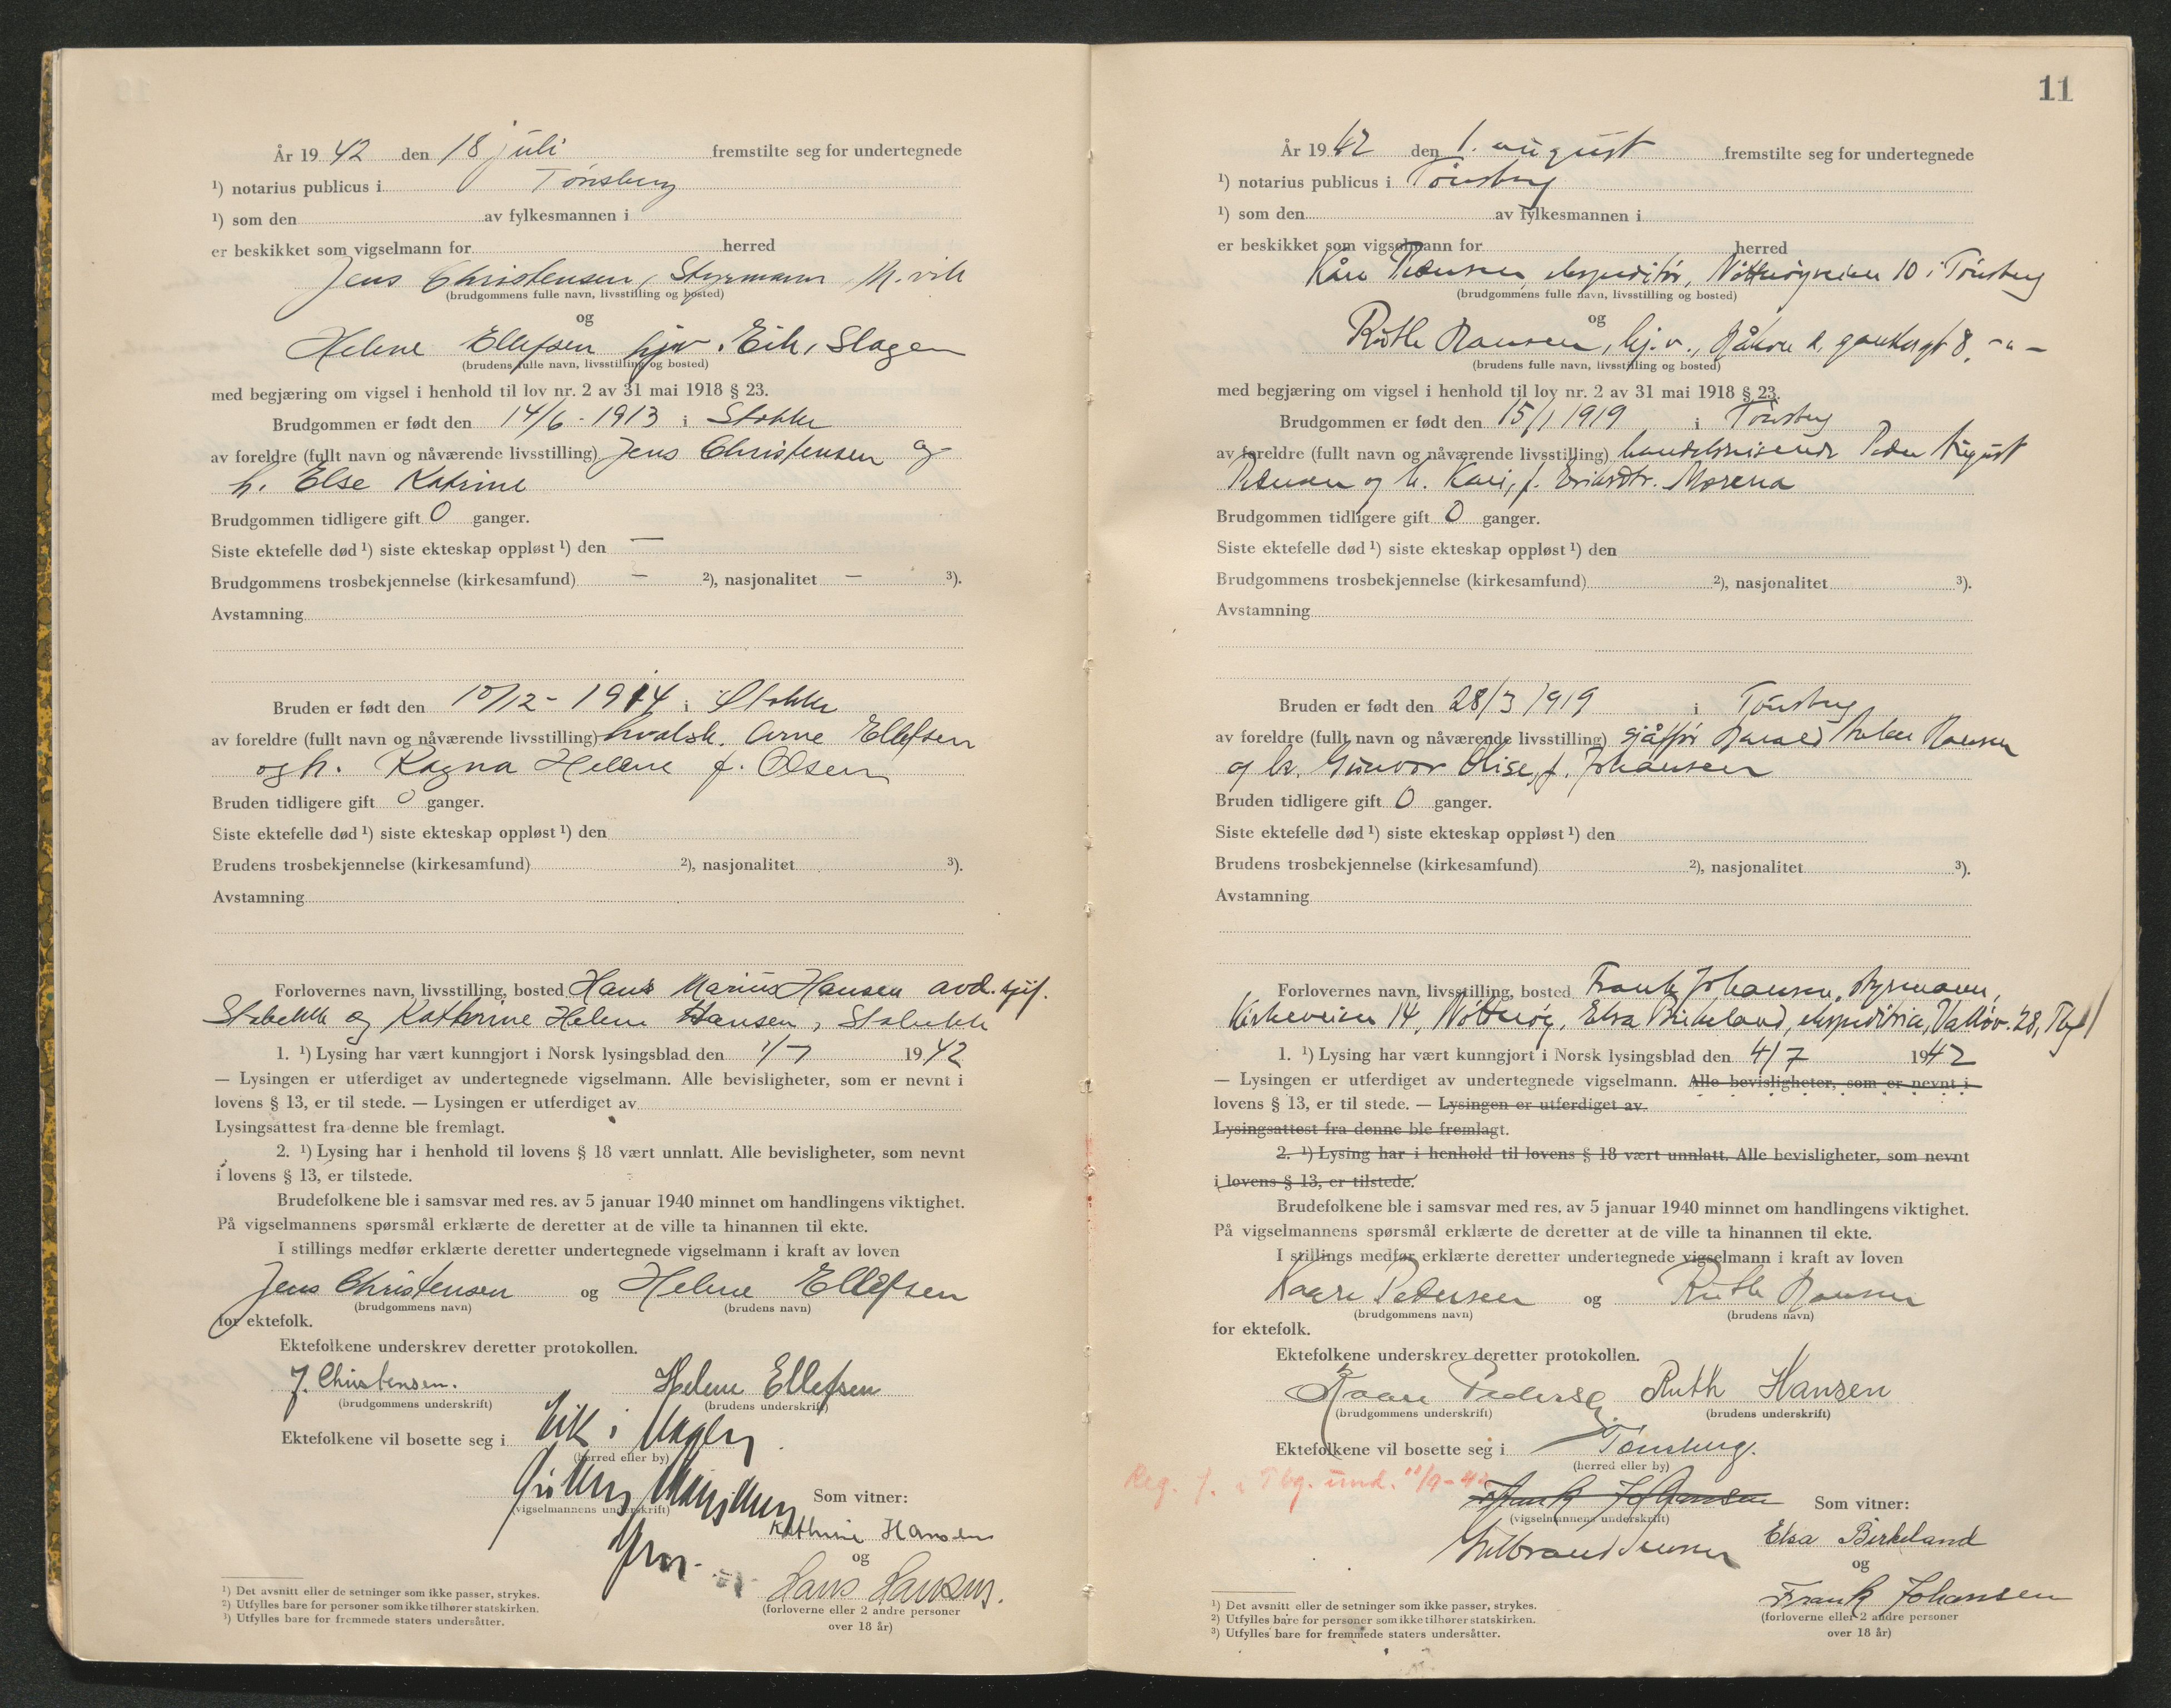 År 1942 den 18 juli fremstilte seg for undertegnede
¹) notarius publicus i Tønsberg
¹) som den av fylkesmannen i
er beskikket som vigselmann for herred
Jens Christensen, Styrmann, N.vik
(brudgommens fulle navn, livsstilling og bosted)
og
Helene Ellefsen hjv. Eik, Slagen
(brudens fulle navn, livsstilling og bosted)
med begjæring om vigsel i henhold til lov nr. 2 av 31 mai 1918 § 23.
Brudgommen er født den 14/6 - 1913 i Stokke
av foreldre (fullt navn og nåværende livsstilling) Jens Christensen og
h. Else Katrine
Brudgommen tidligere gift 0 ganger.
Siste ektefelle død ¹) siste ekteskap oppløst ¹) den —
Brudgommens trosbekjennelse (kirkesamfund) — ²), nasjonalitet — ³).
Avstamning
Bruden er født den 10/12 - 1914 i Stokke
av foreldre (fullt navn og nåværende livsstilling) hvalsk. Arne Ellefsen
og h. Ragna Helene f. Olsen
Bruden tidligere gift 0 ganger.
Siste ektefelle død ¹) siste ekteskap oppløst ¹) den
Brudens trosbekjennelse (kirkesamfund) ²), nasjonalitet ³).
Avstamning
Forlovernes navn, livsstilling, bosted Hans Marius Hansen avd. sjef.
Stabekk og Kathrine Helene Hansen, Stabekk
1. ¹) Lysing har vært kunngjort i Norsk lysingsblad den 1/7 1942
— Lysingen er utferdiget av undertegnede vigselmann. Alle bevisligheter, som er nevnt i
lovens § 13, er til stede. — Lysingen er utferdiget av
Lysingsattest fra denne ble fremlagt.
2. ¹) Lysing har i henhold til lovens § 18 vært unnlatt. Alle bevisligheter, som nevnt
i lovens § 13, er tilstede.
Brudefolkene ble i samsvar med res. av 5 januar 1940 minnet om handlingens viktighet.
På vigselmannens spørsmål erklærte de deretter at de ville ta hinannen til ekte.
I stillings medfør erklærte deretter undertegnede vigselmann i kraft av loven
Jens Christensen og Helene Ellefsen
(brudgommens navn) (brudens navn)
for ektefolk.
Ektefolkene underskrev deretter protokollen.
J. Christensen. Helene Ellefsen
(brudgommens underskrift) (brudens underskrift)
Ektefolkene vil bosette seg i Eik i Slagen
(herred eller by)
(vigselmannens underskrift) Som vitner:
Kathrine Hansen
og
Hans Hansen.
(forloverne eller 2 andre personer
over 18 år)
¹) Det avsnitt eller de setninger som ikke passer, strykes.
²) Utfylles bare for personer som ikke tilhører statskirken.
³) Utfylles bare for fremmede staters undersåtter.
11
År 1942 den 1. august fremstilte seg for undertegnede
¹) notarius publicus i Tønsberg
¹) som den av fylkesmannen i
er beskikket som vigselmann for herred
Kåre Pedersen, ekspeditør, Nøtterøyveien 10 i Tønsberg
(brudgommens fulle navn, livsstilling og bosted)
og
Ruth Hansen, hj.v., Håkon d. gamlesgt 8, -"-
(brudens fulle navn, livsstilling og bosted)
med begjæring om vigsel i henhold til lov nr. 2 av 31 mai 1918 § 23.
Brudgommen er født den 15/1 1919 i Tønsberg
av foreldre (fullt navn og nåværende livsstilling) handelsreisende Peder August
Pedersen og h. Kari, f. Eriksdtr. Morena
Brudgommen tidligere gift 0 ganger.
Siste ektefelle død ¹) siste ekteskap oppløst ¹) den
Brudgommens trosbekjennelse (kirkesamfund) ²), nasjonalitet ³).
Avstamning
Bruden er født den 28/3 1919 i Tønsberg
av foreldre (fullt navn og nåværende livsstilling) sjåffør Harald Hansen
og h. Gunvor Elise, f. Johansen
Bruden tidligere gift 0 ganger.
Siste ektefelle død ¹) siste ekteskap oppløst ¹) den
Brudens trosbekjennelse (kirkesamfund) ²), nasjonalitet ³).
Avstamning
Forlovernes navn, livsstilling, bosted Frank Johansen, styrmann,
Kirkeveien 14, Nøtterøy, Elsa Birkeland, ekspeditrice, Valløv. 28, Tbg
1. ¹) Lysing har vært kunngjort i Norsk lysingsblad den 4/7 1942
— Lysingen er utferdiget av undertegnede vigselmann. Alle bevisligheter, som er nevnt i
lovens § 13, er til stede. — Lysingen er utferdiget av
Lysingsattest fra denne ble fremlagt.
2. ¹) Lysing har i henhold til lovens § 18 vært unnlatt. Alle bevisligheter, som nevnt
i lovens § 13, er tilstede.
Brudefolkene ble i samsvar med res. av 5 januar 1940 minnet om handlingens viktighet.
På vigselmannens spørsmål erklærte de deretter at de ville ta hinannen til ekte.
I stillings medfør erklærte deretter undertegnede vigselmann i kraft av loven
Kaare Pedersen og Ruth Hansen
(brudgommens navn) (brudens navn)
for ektefolk.
Ektefolkene underskrev deretter protokollen.
Kaare Pedersen Ruth Hansen
(brudgommens underskrift) (brudens underskrift)
Ektefolkene vil bosette seg i Tønsberg.
(herred eller by)
Reg. f. Tbg. 11/9-42
Frank Johansen Som vitner:
(vigselmannens underskrift)
Elsa Birkeland
og
Frank Johansen
(forloverne eller 2 andre personer
over 18 år)
¹) Det avsnitt eller de setninger som ikke passer, strykes.
²) Utfylles bare for personer som ikke tilhører statskirken.
³) Utfylles bare for fremmede staters undersåtter.